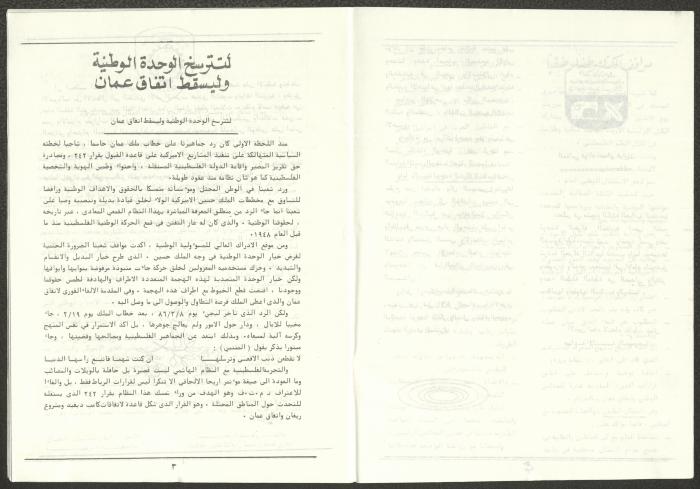 لتترسخ الوحدة الوطنية
وليسقط اتفاق عمان
لتترسخ الوحدة الوطنية وليسقط اتفاق عمان
منذ اللحظة الاولى كان رد جماهيرنا على خطاب ملك عمان حاسما ، شاجبا لخطته
السياسية المتهالكة على تنفيذ المشاريع الاميركية على قاعدة القبول بقرار ٢٤٢ ، ومصادرة
حق تقرير المصير واقامة الدولة الفلسطينية المستقلة ، واحتواء وطمس الهوية والشخصية
الفلسطينية كما هو شأن نظامه منذ عقود طويلة .
ورد شعبنا في الوطن المحتل ومؤسساته متمسكا بالحقوق والاهداف الوطنية ورافضا
للتساوق مع مخططات الملك حسين الاميركية الولاء لخلق قيادة بديلة وتنصيبه وصيا على
شعبنا انما جاء الرد من منطلق المعرفة المباشرة بهذا النظام القمعي المعادي ، عبر تاريخه
، لحقوقنا الوطنية . والذي كان له عار التفنن في قمع الحركة الوطنية الفلسطينية منذ ما
قبل العام ١٩٤٨ .
ومن موقع الادراك العالي للمسؤولية الوطنية ، اكدت مواقف شعبنا الضرورة الحتمية
لفرض خيار الوحدة الوطنية في وجه الملك حسين . الذي طرح خيار البديل والانقسام
والتبديد . وحرك مستخدميه المعزولين لخلق حركة جاءت منبوذة مرفوضة بنواياها وابواقها
ولكن خيار الوحدة المتصدية لهذه الهجمة المتعددة الاطراف والهادفة لطمس حقوقنا
ووجودنا ، اقتضت قطع الخيوط مع اطراف هذه الهجمة . وفي المقدمة الالغاء الفوري لاتفاق
عمان والذي اعطى الملك فرصة التطاول والوصول الى ما وصل اليه .
ولكن الرد الذي تأخر ليجيء يوم ٨٦/٣/٨ ، بعد خطاب الملك يوم ٢/١٩ ، جاء
مخيبا للامال ، ودار حول الامور ولم يعالج جوهرها ، بل اكد الاستمرار في نفس المنهج
وكرسه آلية لمسعاه . وبذلك ابتعد عن الجماهير الفلسطينية ومصالحها وقضيتها ، وجاء
مبتورا يذكر بقول ( المتنبي ) :
لا تقطعن ذنب الافعى وترسلها    ان كنت شهما فاتبع رأسها الذنبا
والتجربة الفلسطينية مع النظام الهاشمي ليست قصيرة بل حافلة بالويلات والمصائب
وما العودة الى صيغة مؤتمر اريحا الالحاقي الا تنكرا ليس لقرارات الرباط فقط ، بل والغاء
للاعتراف بـ م.ت.ف وهو الهدف من وراء تمسك هذا النظام بقرار ٢٤٢ الذي يستغله
للتحدث حول المناطق المحتلة . وهو القرار الذي شكل قاعدة لاتفاقات كامب ديفيد ومشروع
ريغان واتفاق عمان .
٣